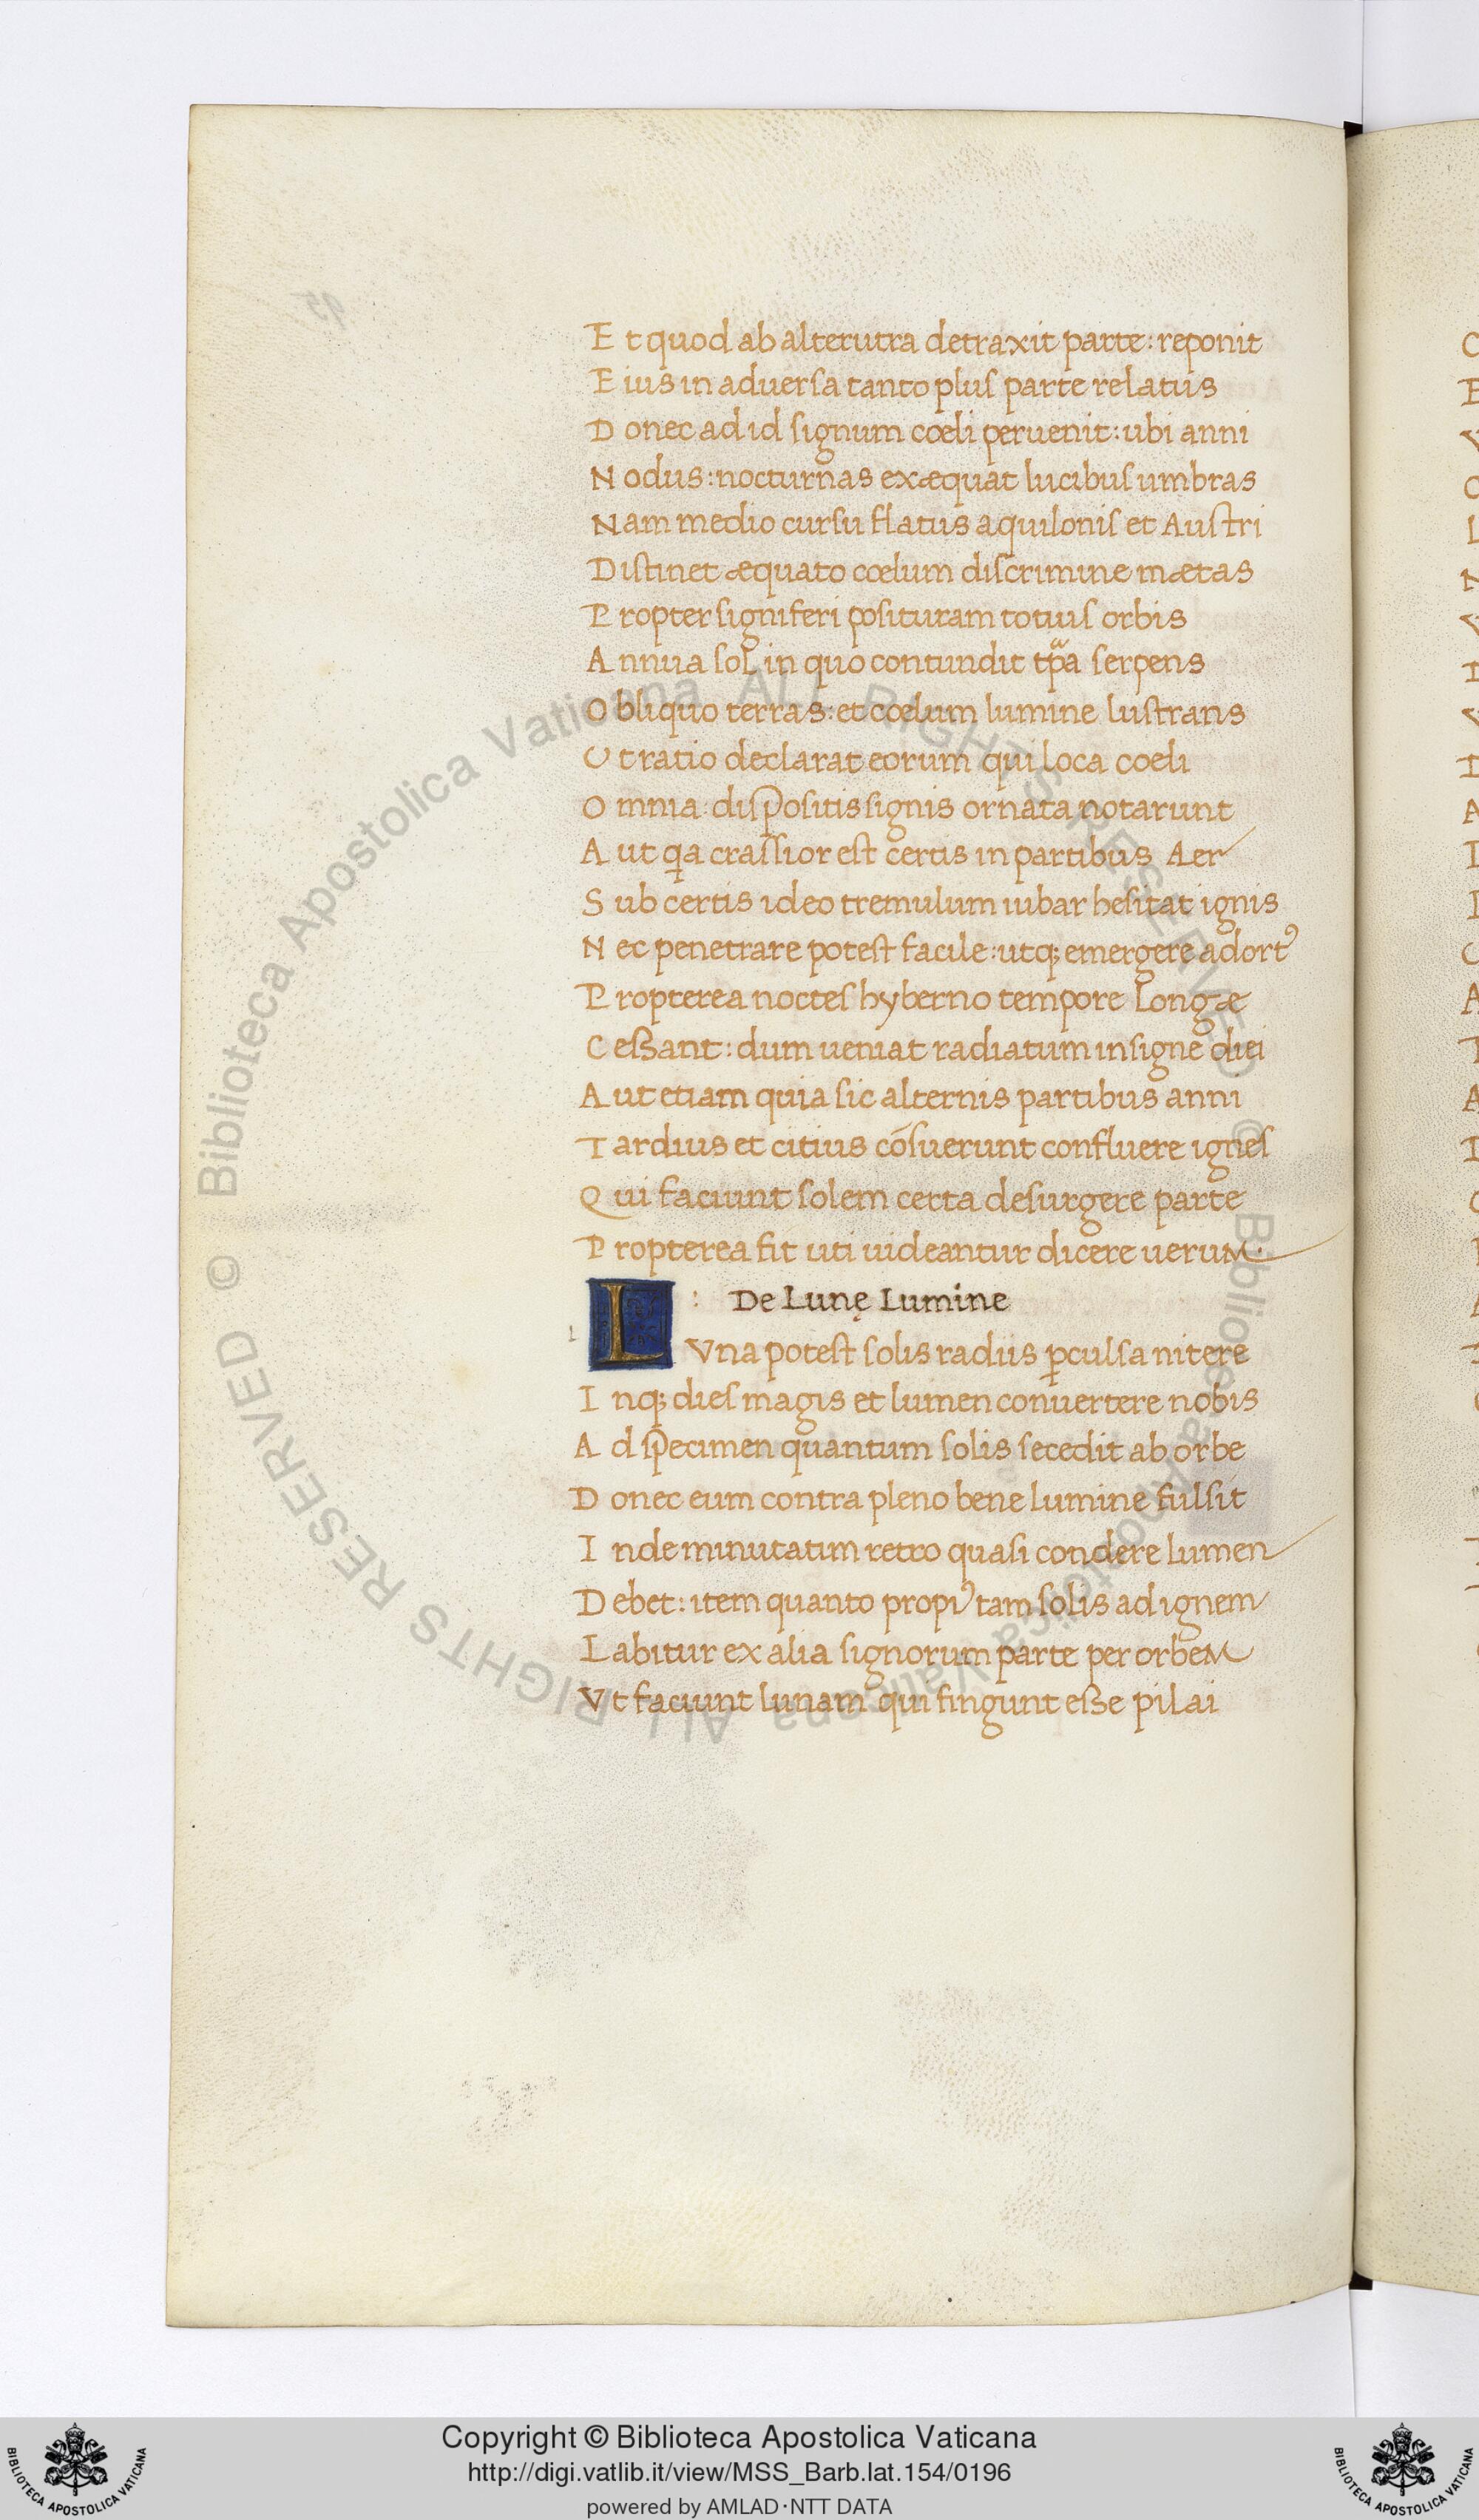 Et quod ab alterutra detraxit parte: reponit
Eius in aduersa tanto plus parte relatus
Donec ad id signum cœli peruenit: ubi anni
Nodus: nocturnas exæquat lucibus umbras
Nam medio cursu flatus aquilonis et Austri
Distinet æquato cœlum discrimine mætas
Propter signiferi posituram totius orbis
Annua sol in quo contundit tp̅a serpens
Obliquo terras: et cœlum lumine lustrans
Vt ratio declarat eorum qui loca coeli
Omnia: dispositis signis ornata notarunt
Aut qa crassior est certis in partibus Aer
Sub certis ideo tremulum iubar hesitat ignis
Nec penetrare potest facile: utq; emergere ad ortꝰ
Propterea noctes hyberno tempore Longæ
Cessant: dum ueniat radiatum insigne diei
Aut etiam quia sic alternis partibus anni
Tardius et citius cōsuerunt confluere ignes
Qui faciunt solem certa desurgere parte
Propterea fit uti uideantur dicere ueruM.
: De Lunę Lumine
l
LVna potest solis radiis ꝑculsa nitere
Inq; dies magis et lumen conuertere nobis
Ad specimen quantum solis secedit ab orbe
Donec eum contra pleno bene lumine fulsit
Inde minutatim retro quasi condere lumen
Debet: item quanto propiꝰ tam solis ad ignem
Labitur ex alia signorum parte per orbeM
Vt faciunt lunam qui fingunt esse pilai
© Biblioteca Apostolica Vaticana ALL RIGHTS RESERVED © Biblioteca Apostolica Vaticana ALL RIGHTS RESERVED
Copyright © Biblioteca Apostolica Vaticana
http://digi.vatlib.it/view/MSS_Barb.lat.154/0196
powered by AMLAD·NTT DATA
BIBLIOTECA APOSTOLICA VATICANA
BIBLIOTECA APOSTOLICA VATICANA